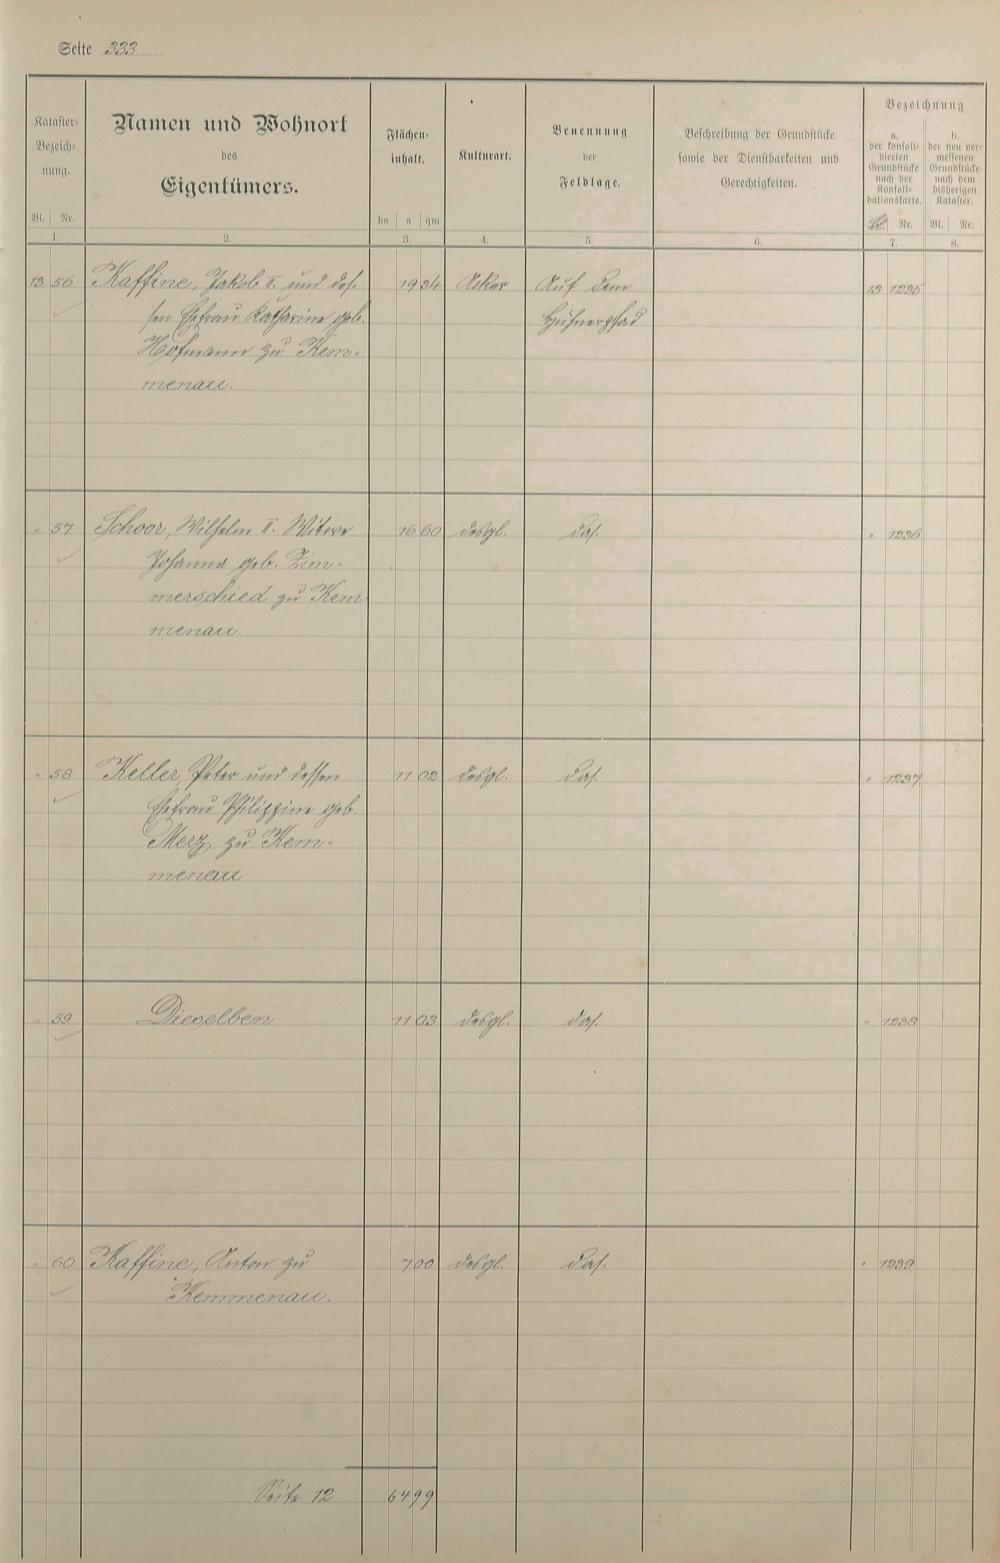 Seite 333
Kataster-
Bezeich-
nung.
Bl. Nr.
1.
Namen und Wohnort
des
Eigentümers.
2.
Flächen-
inhalt.
ha a qm
3.
Kulturart.
4.
Benennung
der
Feldlage.
5.
Beschreibung der Grundstücke
sowie der Dienstbarkeiten und
Gerechtigkeiten.
6.
Bezeichnung
a.
der konsoli-
dierten
Grundstücke
nach der
Konsoli-
dationskarte.
Bl. Nr.
7.
b.
der neu ver-
messenen
Grundstücke
nach dem
bisherigen
Kataster.
Bl. Nr.
8.
13 56 Kaffine, Jakob I. und des- 19 34 Acker Auf dem 13 1235
sen Ehefrau Katharine geb. Hühnerpfad
Hofmann zu Kem-
menau.
" 57 Schoor, Wilhelm II. Witwe 16 60 desgl. das. " 1236
Johanna geb. Zim-
merschied zu Kem-
menau.
" 58 Keller, Peter und dessen 11 02 desgl. das. " 1237
Ehefrau Philippine geb.
Merz zu Kem-
menau
" 59 Dieselben 11 03 desgl. das. " 1238
" 60 Kaffine, Anton zu 7 00 desgl. das. " 1239
Kemmenau.
Seite 12 64 99